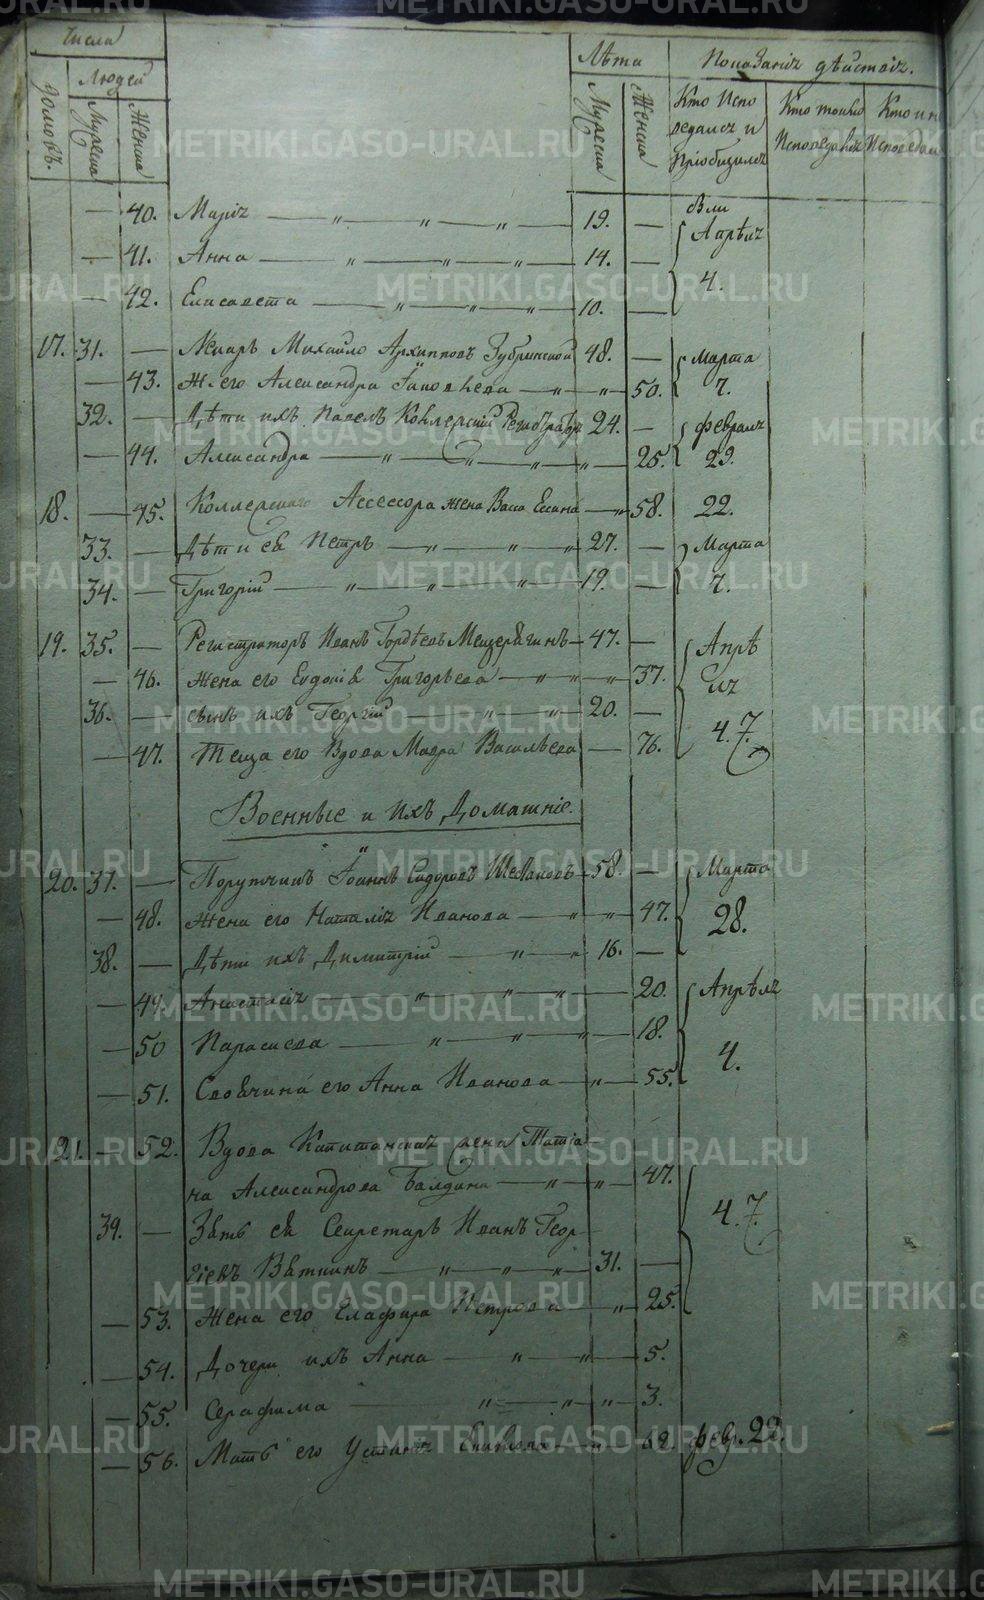 METRIKI.GASO-URAL.RU
Числа Лѣта Показаніе дѣйствія.
Домовъ. Людей Мужеска Женска Мужеска Женска Кто Испо Кто токмо Кто и не
ведался и Исповедался Исповедался
пріобщился
— 40. Марія — „ — „ — „ — 19. — Апрѣля
— 41. Анна — „ — „ — „ — 14. — 4.
— 42. Елисавета — „ — „ — „ — 10. —
17. 31. — Михайло Архиповъ Зубринской 48. — Марта
— 43. Ж. его Александра Іаковлева — „ — „ — 50. 7.
32. — Дѣти ихъ Павелъ 24. — Февраля
— 44. Александра — „ — „ — „ — „ — 25. 29.
18. — 45. Коллежскаго Ассессора жена Васса — „ 58. 22.
33. — Дѣти ея Петръ — „ — „ — „ 27. — Марта
34. — Григорій — „ — „ — „ — 19. — 7.
19. 35. — Регистраторъ Иванъ Гордѣевъ Мещерягинъ — 47. — Апрѣ
— 46. Жена его Евдокія Григорьева — „ — „ — „ — 37. ля
36. — сынъ ихъ Георгій — „ — „ — 20. — 4. 7.
— 47. Теща его Вдова Мавра Васильева — 76.
Военные и ихъ Домашніе.
20. 37. — Порутчикъ Іоаннъ Сидоровъ — 58. — Марта
— 48. Жена его Наталія Иванова — „ — „ — 47. 28.
38. — Дѣти ихъ Димитрій — „ — „ 16. —
— 49. Анастасія — „ — „ — „ — 20. Апрѣля
— 50 Параскева — „ — „ — „ — 18. 4.
— 51. Своячина его Анна Иванова — „ — 55.
21. — 52. Вдова Капитанская жена Татіа-
на Александрова Балдина — „ — „ — 47. 4. 7.
39. — Зять ея Секретарь Иванъ Геор-
гіевъ Вяткинъ — „ — „ — „ — 31. —
— 53. Жена его Глафира Петрова — „ — 25.
— 54. Дочери ихъ Анна — „ — „ — 5.
— 55. Серафима — „ — „ — „ — 3.
— 56. Мать его Устинія — „ — 62. февр. 22.